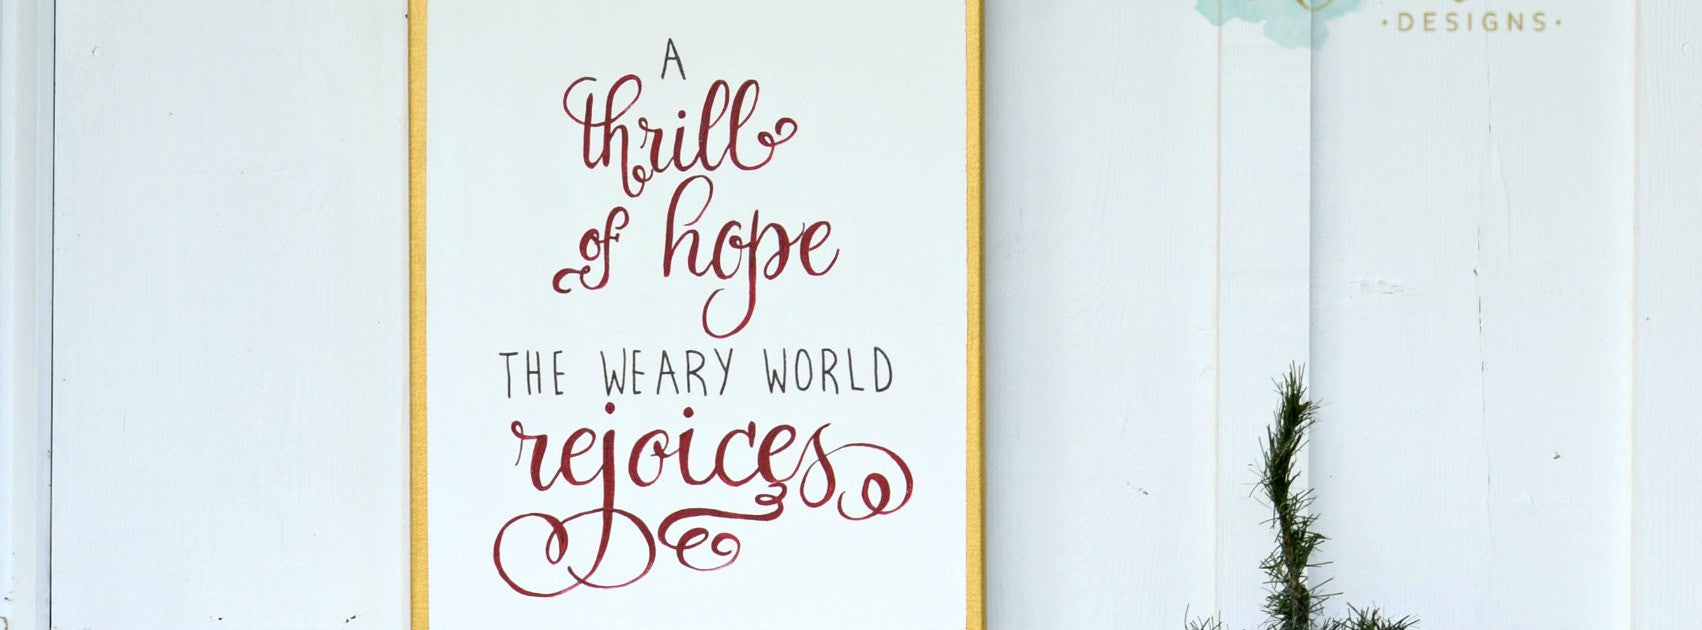 A
thrill
of hope
THE WEARY WORLD
rejoices
·DESIGNS·